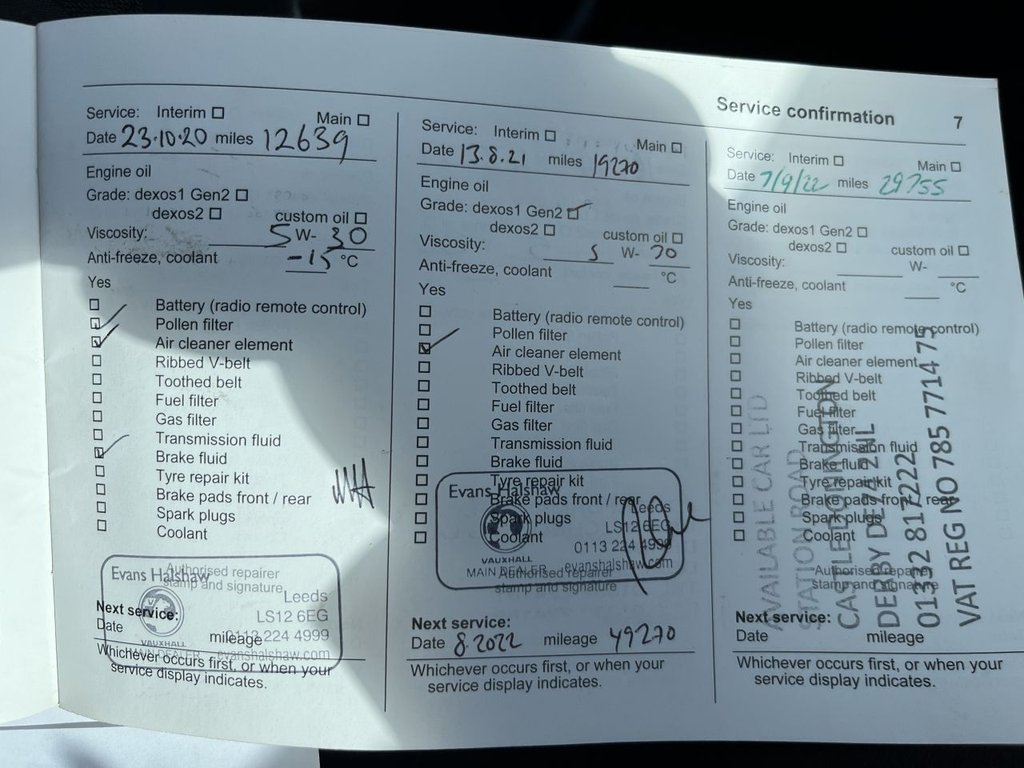 Service confirmation 7
Service: Interim ☐ Main ☐
Date 23.10.20 miles 12639
Engine oil
Grade: dexos1 Gen2 ☐
dexos2 ☐ custom oil ☐
Viscosity: 5 W- 30
Anti-freeze, coolant -15 °C
Yes
Battery (radio remote control)
Pollen filter
Air cleaner element
Ribbed V-belt
Toothed belt
Fuel filter
Gas filter
Transmission fluid
Brake fluid
Tyre repair kit
Brake pads front / rear
Spark plugs
Coolant
Authorised repairer
stamp and signature
Evans Halshaw
Leeds
LS12 6EG
0113 224 4999
VAUXHALL
MAIN DEALER evanshalshaw.com
Next service:
Date mileage
Whichever occurs first, or when your
service display indicates.
Service: Interim ☐ Main ☐
Date 13.8.21 miles 19270
Engine oil
Grade: dexos1 Gen2 ☑
dexos2 ☐ custom oil ☐
Viscosity: 5 W- 30
Anti-freeze, coolant °C
Yes
Battery (radio remote control)
Pollen filter
Air cleaner element
Ribbed V-belt
Toothed belt
Fuel filter
Gas filter
Transmission fluid
Brake fluid
Tyre repair kit
Brake pads front / rear
Spark plugs
Coolant
Authorised repairer
stamp and signature
Evans Halshaw
Leeds
LS12 6EG
0113 224 4999
VAUXHALL
MAIN DEALER evanshalshaw.com
Next service:
Date 8.2022 mileage 49270
Whichever occurs first, or when your
service display indicates.
Service: Interim ☐ Main ☐
Date 7/9/22 miles 29755
Engine oil
Grade: dexos1 Gen2 ☐
dexos2 ☐ custom oil ☐
Viscosity: W-
Anti-freeze, coolant °C
Yes
Battery (radio remote control)
Pollen filter
Air cleaner element
Ribbed V-belt
Toothed belt
Fuel filter
Gas filter
Transmission fluid
Brake fluid
Tyre repair kit
Brake pads front / rear
Spark plugs
Coolant
Authorised repairer
stamp and signature
AVAILABLE CAR LTD
STATION ROAD
CASTLE DONINGTON
DERBY DE74 2NL
01332 817222
VAT REG NO 785 7714 75
Next service:
Date mileage
Whichever occurs first, or when your
service display indicates.